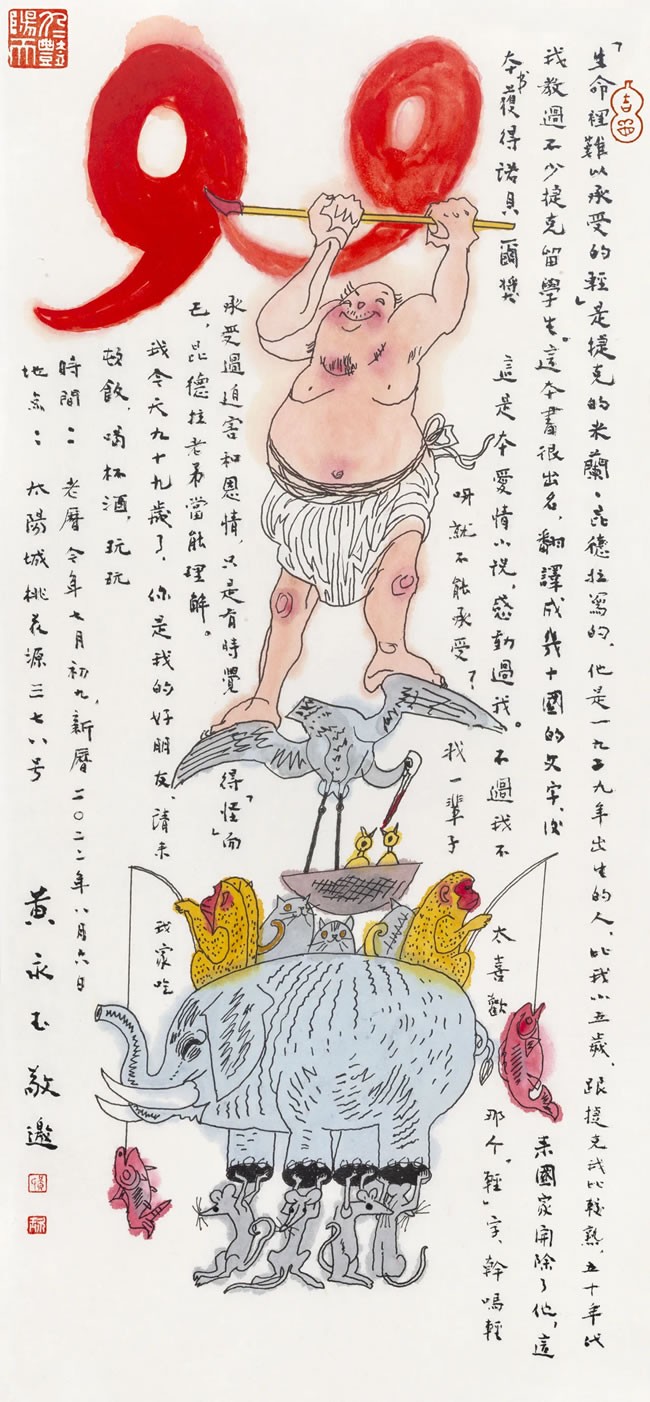 99
「生命裡難以承受的輕」是捷克的米蘭·昆德拉寫的,他是一九二九年出生的人,比我小五歲,跟捷克我比較熟,五十年代
我教過不少捷克留學生。這本書很出名,翻譯成幾十國的文字,後來國家開除了他,這
本書獲得諾貝爾獎
這是本愛情小說,感動過我。不過我不太喜歡那个“輕”字,幹嗎輕
呀就不能承受?我一輩子
承受過迫害和恩情,只是有時覺得「怪」而
已,昆德拉老弟當能理解。
我今天九十九歲了,你是我的好朋友,請來我家吃
頓飯,喝杯酒,玩玩
時間:老曆今年七月初九,新曆二〇二二年八月六日
地点:太陽城桃花源三七八号
黃永玉敬邀